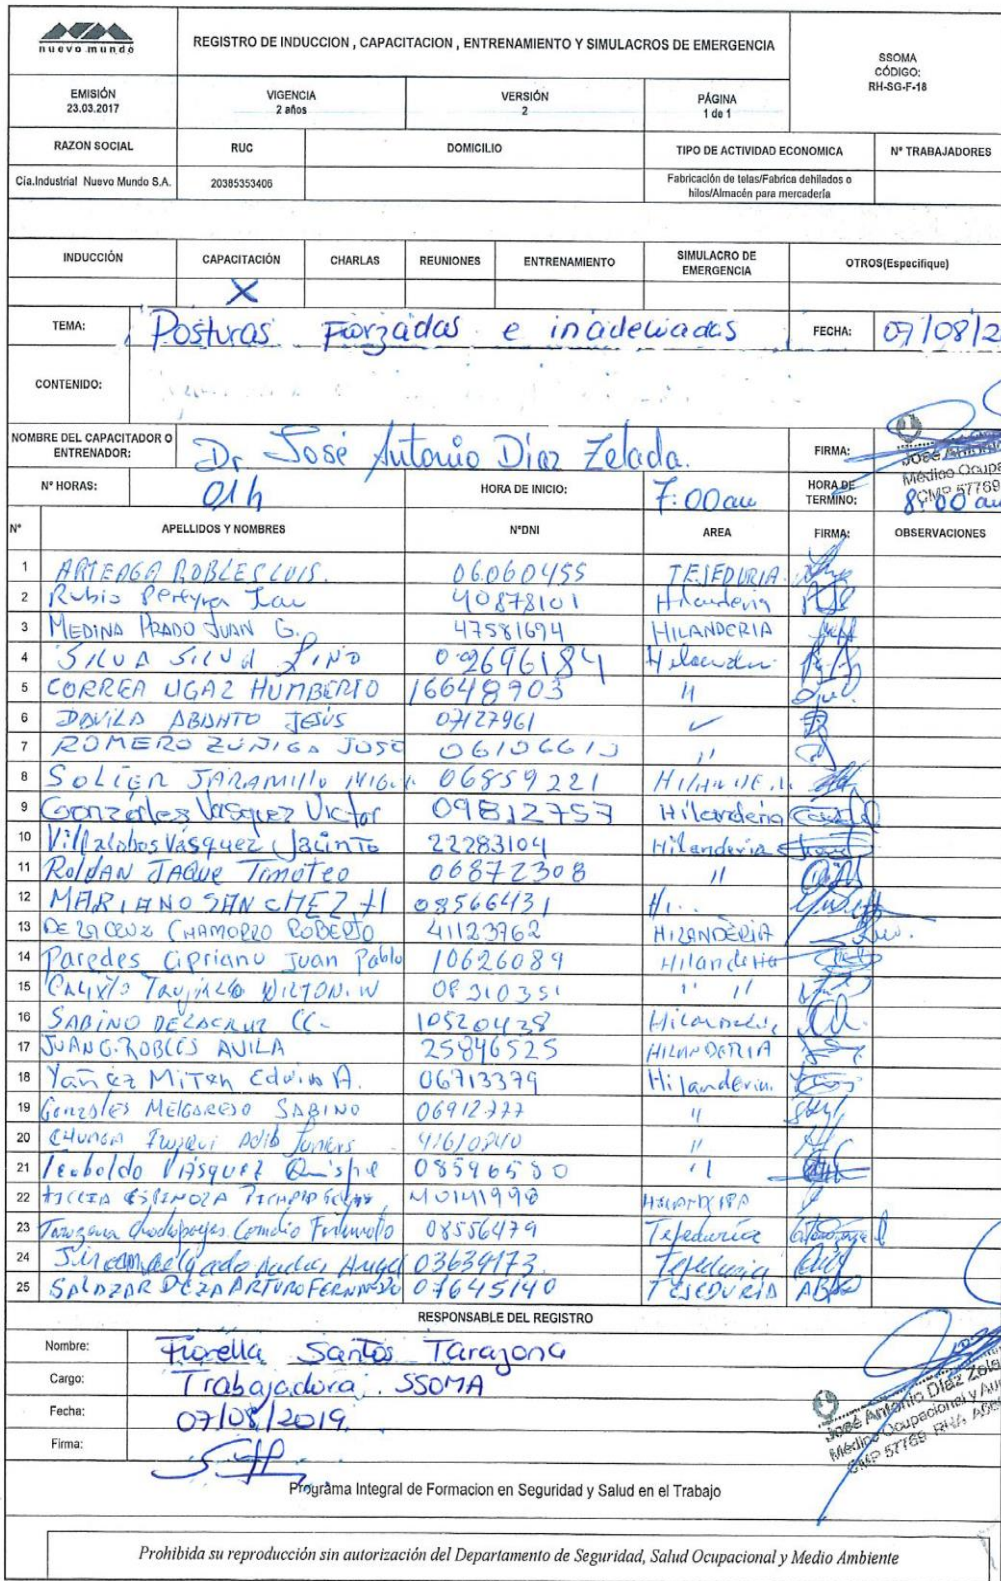 nuevo mundo
REGISTRO DE INDUCCION , CAPACITACION , ENTRENAMIENTO Y SIMULACROS DE EMERGENCIA
SSOMA
CÓDIGO:
RH-SG-F-18
EMISIÓN
23.03.2017
VIGENCIA
2 años
VERSIÓN
2
PÁGINA
1 de 1
RAZON SOCIAL RUC DOMICILIO TIPO DE ACTIVIDAD ECONOMICA N° TRABAJADORES
Cía.Industrial Nuevo Mundo S.A. 20385353406 Fabricación de telas/Fabrica dehilados o
hilos/Almacén para mercadería
INDUCCIÓN CAPACITACIÓN CHARLAS REUNIONES ENTRENAMIENTO SIMULACRO DE
EMERGENCIA OTROS(Especifique)
X
TEMA: Posturas Forzadas e inadecuadas FECHA: 07/08/2
CONTENIDO:
NOMBRE DEL CAPACITADOR O
ENTRENADOR: Dr José Antonio Díaz Zelada. FIRMA:
José Antonio
Médico Ocupa
CMP 57769
N° HORAS: 01h HORA DE INICIO: 7:00am HORA DE
TERMINO: 8:00 am
N° APELLIDOS Y NOMBRES N°DNI AREA FIRMA: OBSERVACIONES
1 ARTEAGA ROBLES LUIS. 06060455 TEJEDURIA
2 Rubio Pereyra 40878101 Hilanderia
3 MEDINA PRADO JUAN G. 47581694 HILANDERIA
4 SILVA SILVA LINO 02696184
5 CORREA UGAZ HUMBERTO 16648903 "
6 DAVILA ABANTO JESÚS 07127961
7 ROMERO ZUÑIGA JOSE "
8 SOLIER JARAMILLO 06859221
9 Gonzales Vasquez Victor 09812757 Hilanderia
10 Villalobos Vásquez Jacinto 22283104 Hilanderia
11 ROLDAN JAQUE Timoteo 06872308 "
12 MARIANO SANCHEZ H 08566431
13 DE LA CRUZ CHAMORRO ROBERTO 41123762 HILANDERIA
14 Paredes Cipriano Juan Pablo 10626089 Hilanderia
15 CALIXTO TRUJILLO WILTON. W 08310351 " "
16 SABINO DE LA CRUZ 10520428
17 JUAN G. ROBLES AVILA 25846525 HILANDERIA
18 Yañez Edwin A. 06713379 Hilanderia
19 Gonzales MELGAREJO SABINO "
20 "
21 Teoboldo VÁSQUEZ Quispe 08596580 "
22 ESPINOZA
23 08556479 Tejeduria
24 03639173 Tejeduria
25 SALAZAR DEZA ARTURO FERNANDO 07645140 TEJEDURIA
RESPONSABLE DEL REGISTRO
Nombre: Fiorella Santos Tarazona
Cargo: Trabajadora. SSOMA
Fecha: 07/08/2019.
Firma:
José Antonio Díaz Zela
Médico Ocupacional y Au
CMP 57769
Programa Integral de Formacion en Seguridad y Salud en el Trabajo
Prohibida su reproducción sin autorización del Departamento de Seguridad, Salud Ocupacional y Medio Ambiente